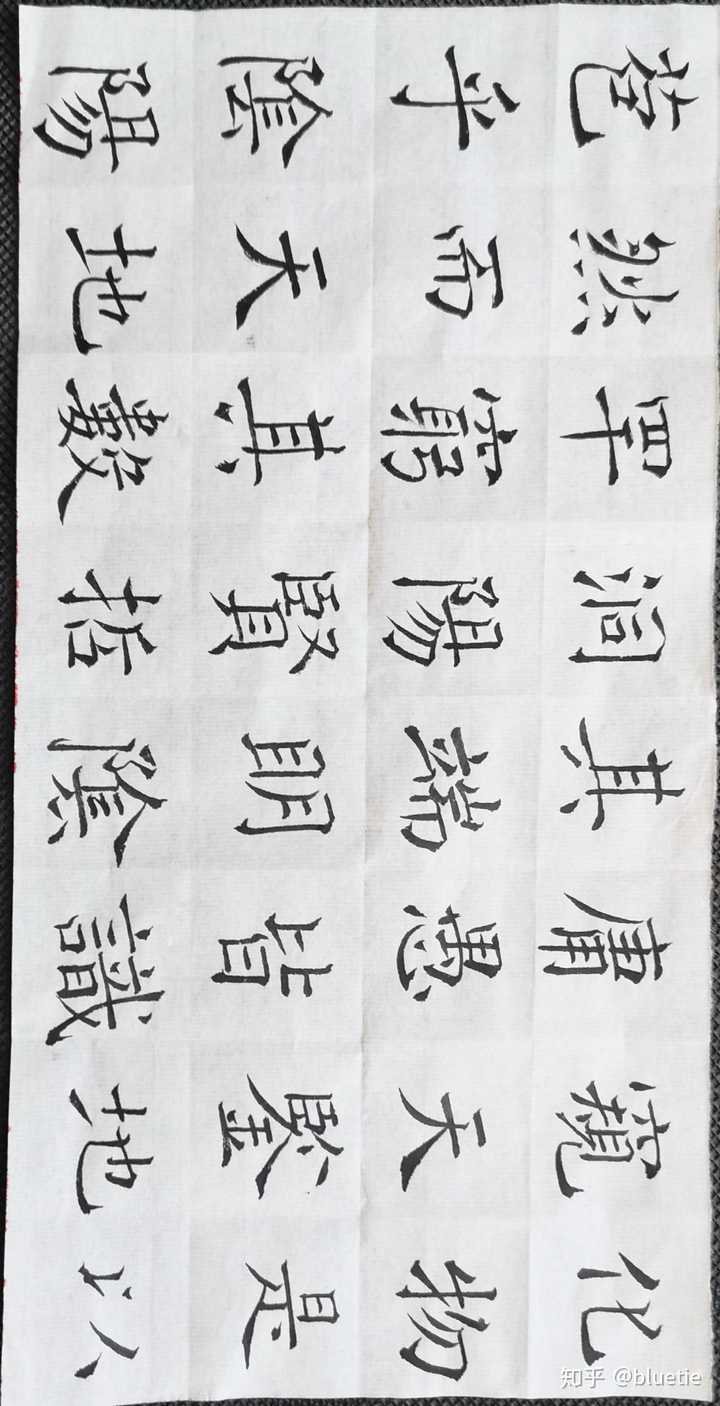 化物是以
窺天鑒地
庸愚皆識
其端明陰
洞陽賢哲
罕窮其數
然而天地
苞乎陰陽
知乎 @bluetie